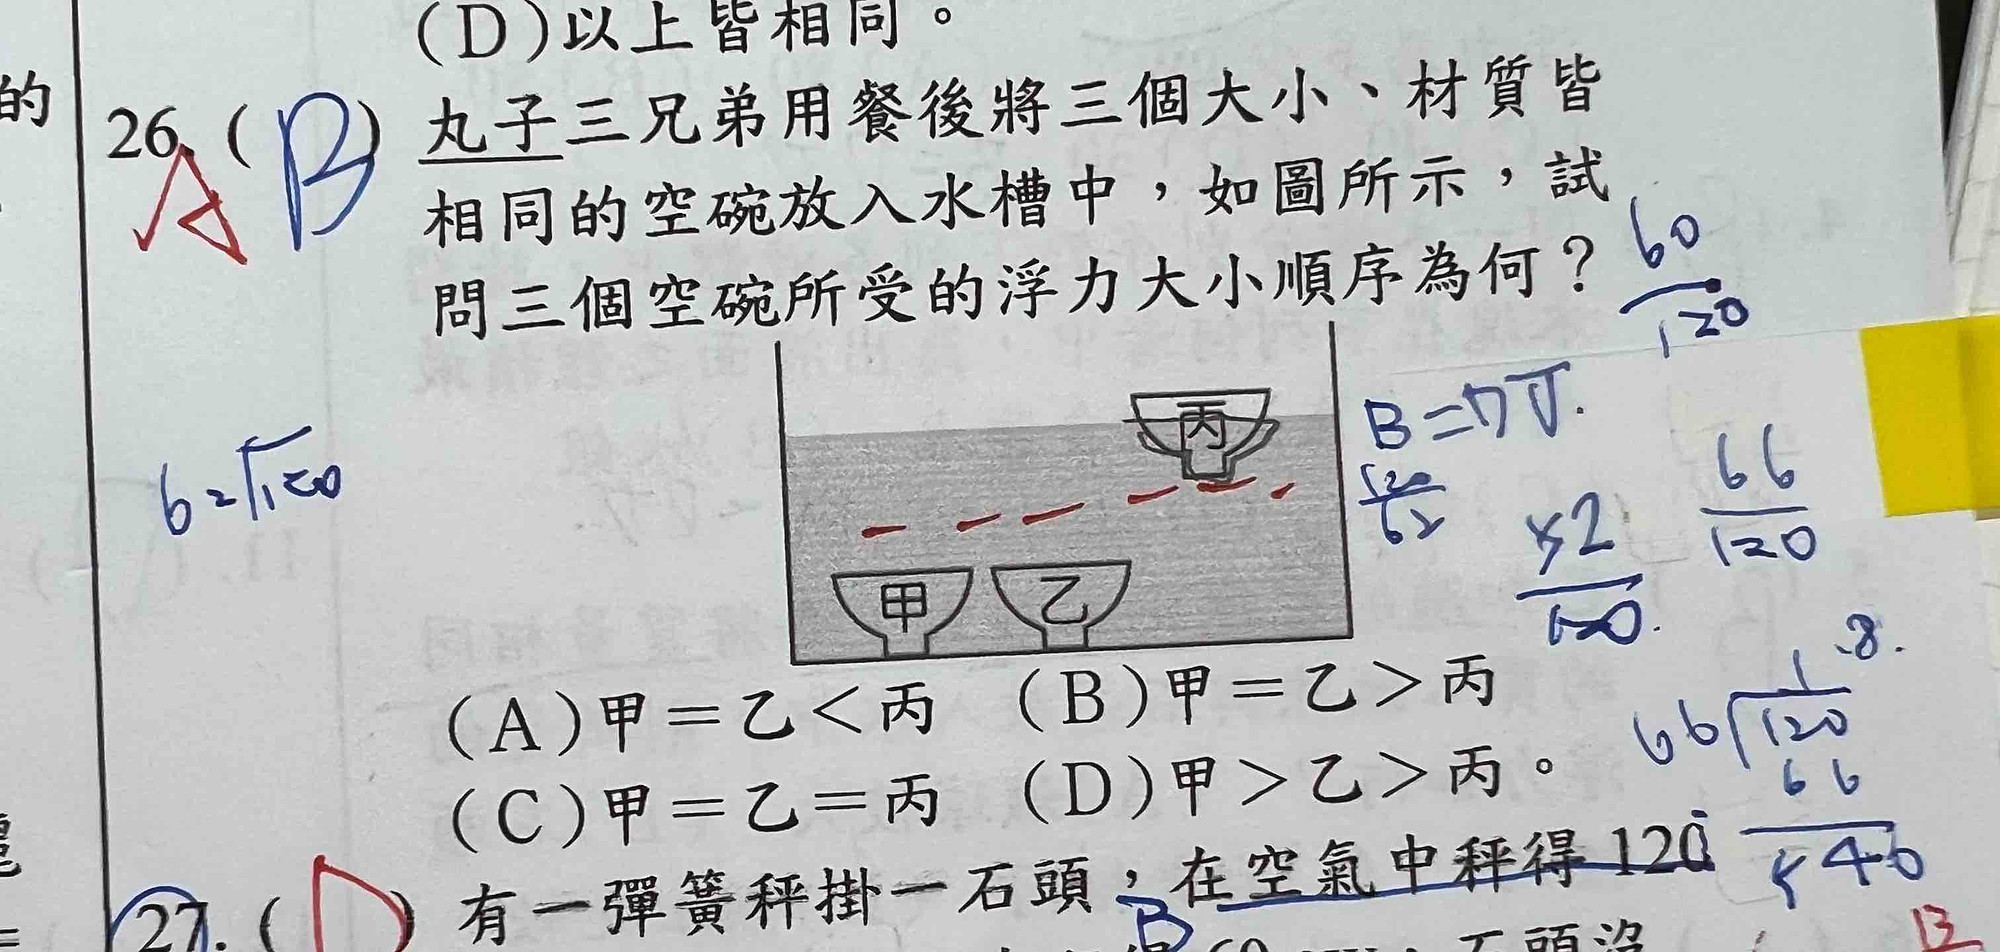 (D)以上皆相同。
的
26. ( B ) 丸子三兄弟用餐後將三個大小、材質皆
A
相同的空碗放入水槽中，如圖所示，試
問三個空碗所受的浮力大小順序為何？
60
120
丙
甲
乙
6=√120
66
120
(A)甲＝乙＜丙 (B)甲＝乙＞丙
(C)甲＝乙＝丙 (D)甲＞乙＞丙。
1.8.
66 120
66
540
27. ( D ) 有一彈簧秤掛一石頭，在空氣中秤得 120
B